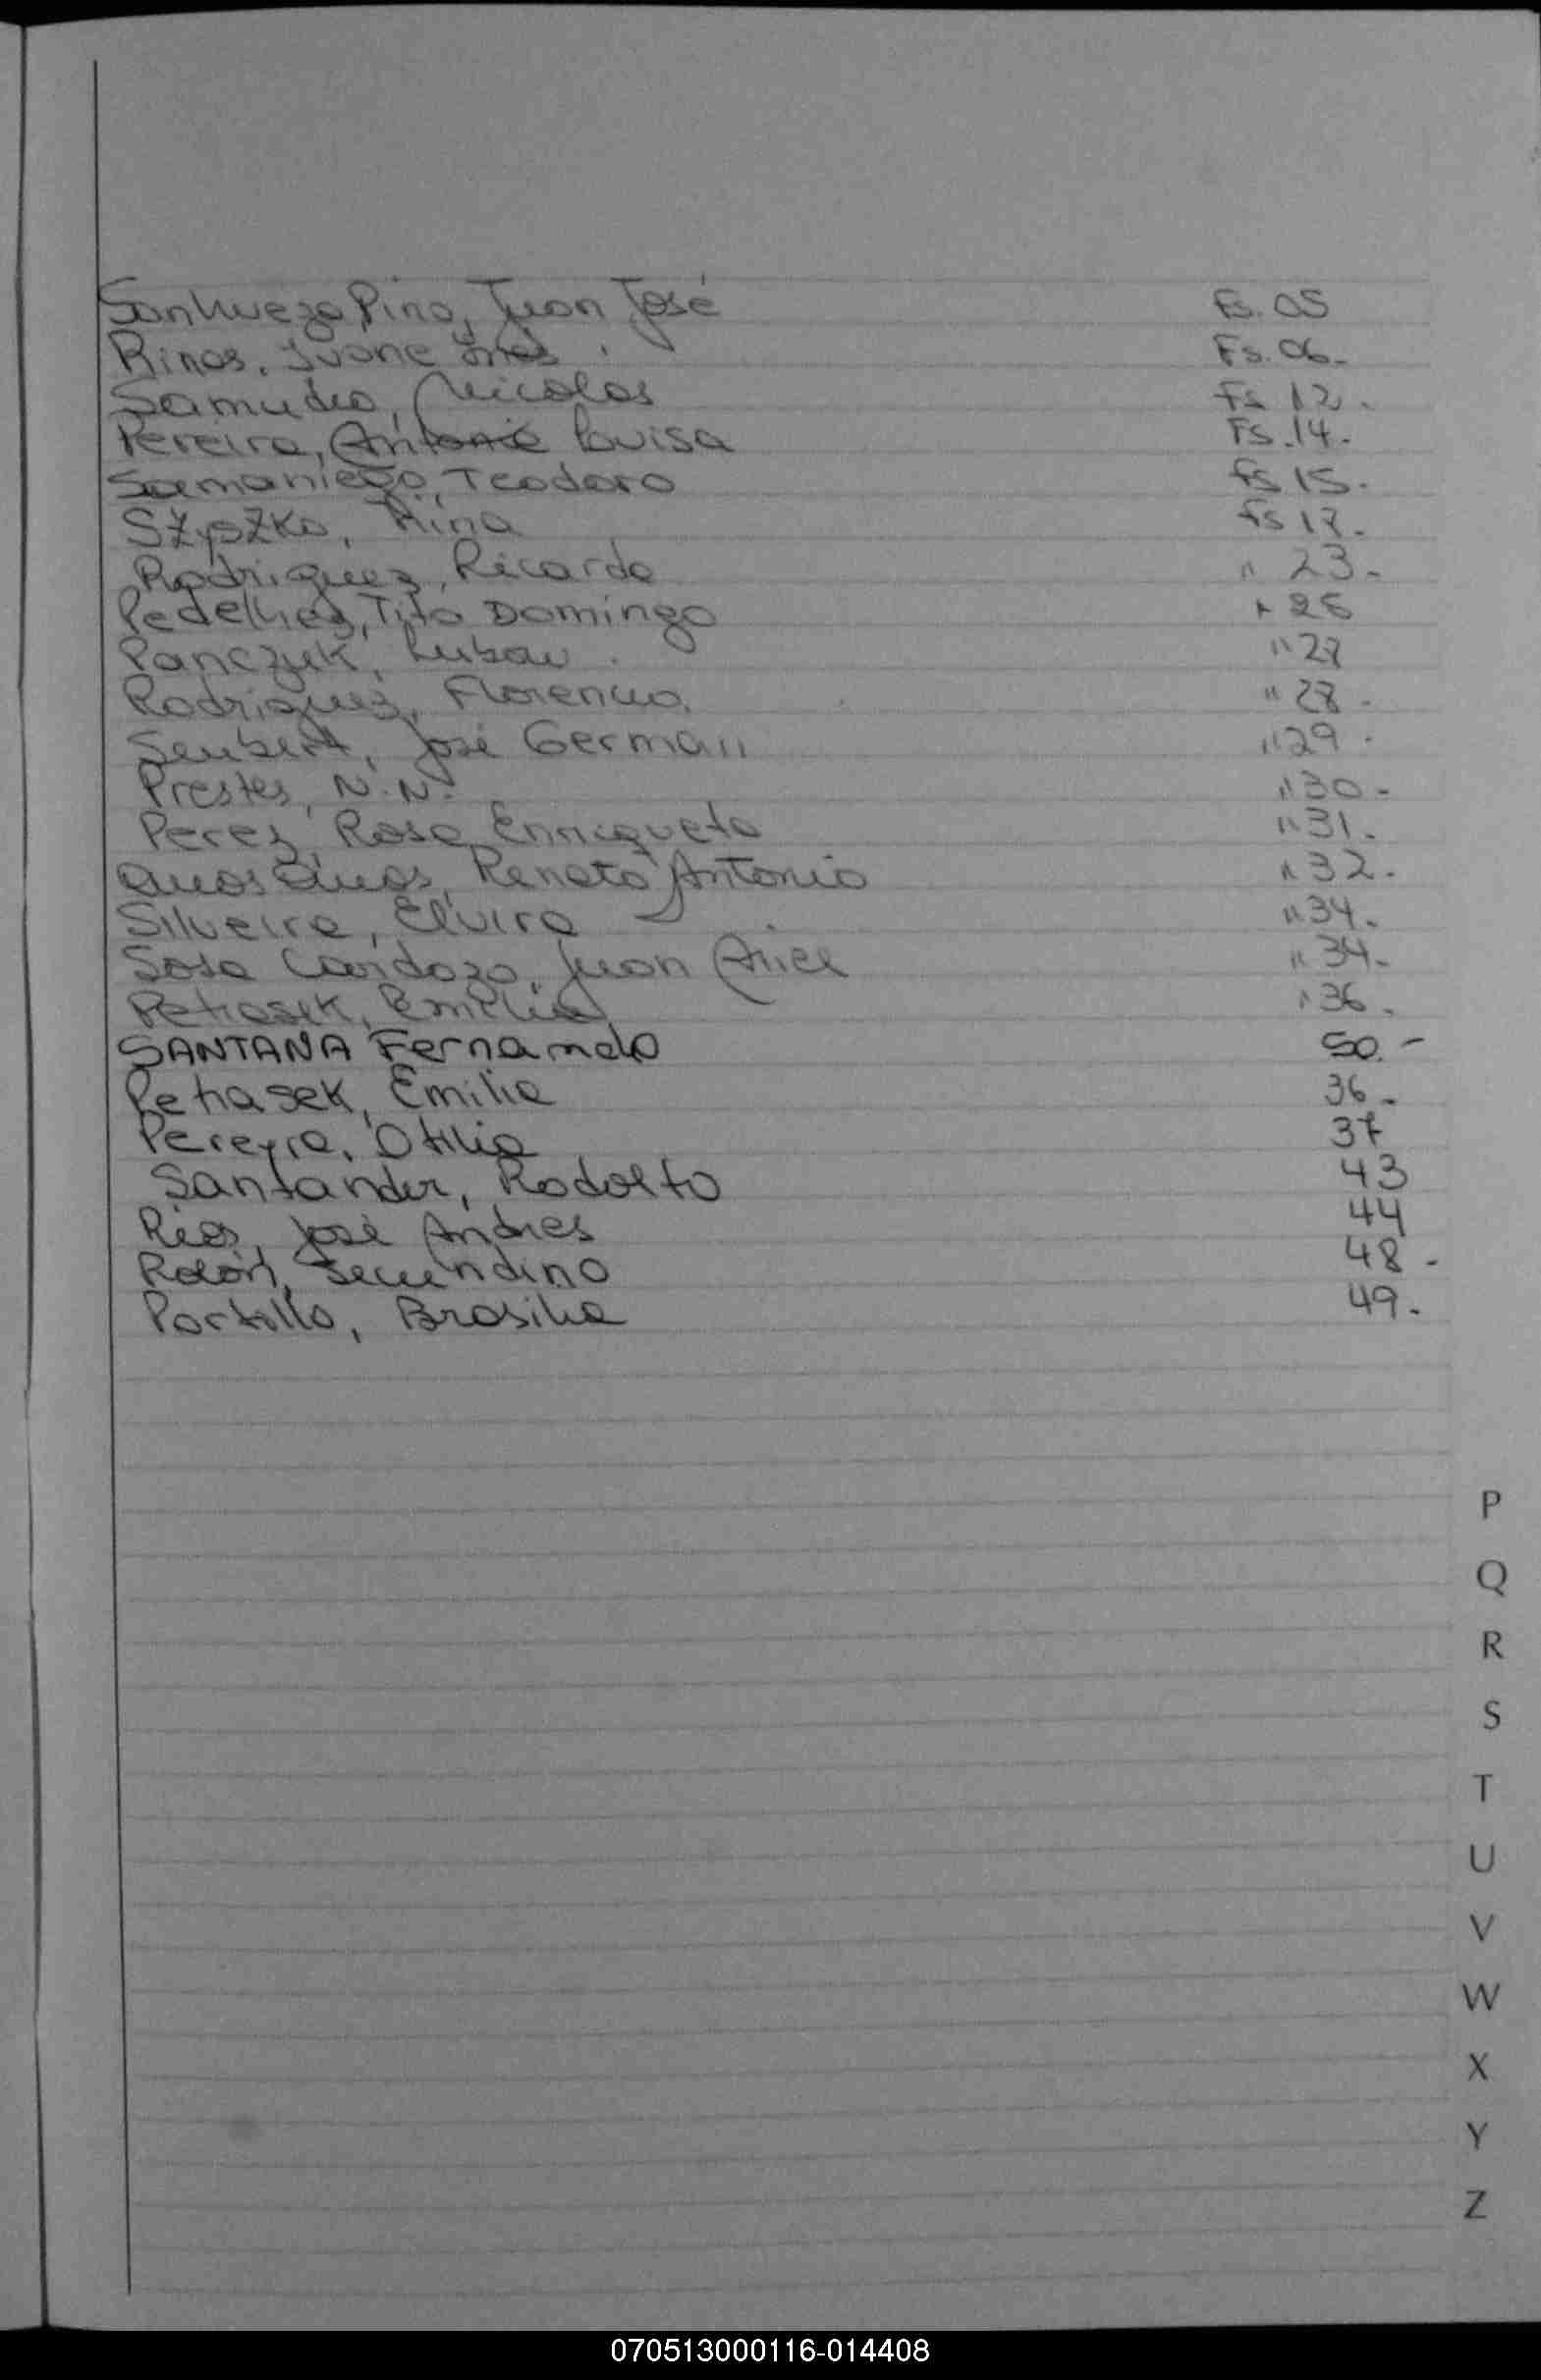 Sanhueza Pino, Juan José Fs. 05
Rinas, Ivone Ines Fs. 06.
Samudio, Nicolas Fs 12.
Pereira, Antonio Luisa Fs. 14.
Samaniego, Teodoro fs 15.
Szyszko, Nina fs 17.
Rodriguez, Ricardo " 23.
Pedelhez, Tito Domingo " 26
Panczuk, Lubow " 27
Rodriguez, Florencio. " 28.
Seubert, José German " 29.
Prestes, N.N. " 30.
Perez, Rosa Enriqueta " 31.
Renato Antonio " 32.
Silveira, Elvira " 34.
Sosa Cardozo, Juan Ariel " 34.
Petrasek, Emilia " 36.
SANTANA Fernando 50.-
Petrasek, Emilia 36.
Pereyra, Otilia 37
Santander, Rodolfo 43
Rios, José Andres 44
Rolón, Secundino 48.
Portillo, Brasilia 49.
P
Q
R
S
T
U
V
W
X
Y
Z
070513000116-014408